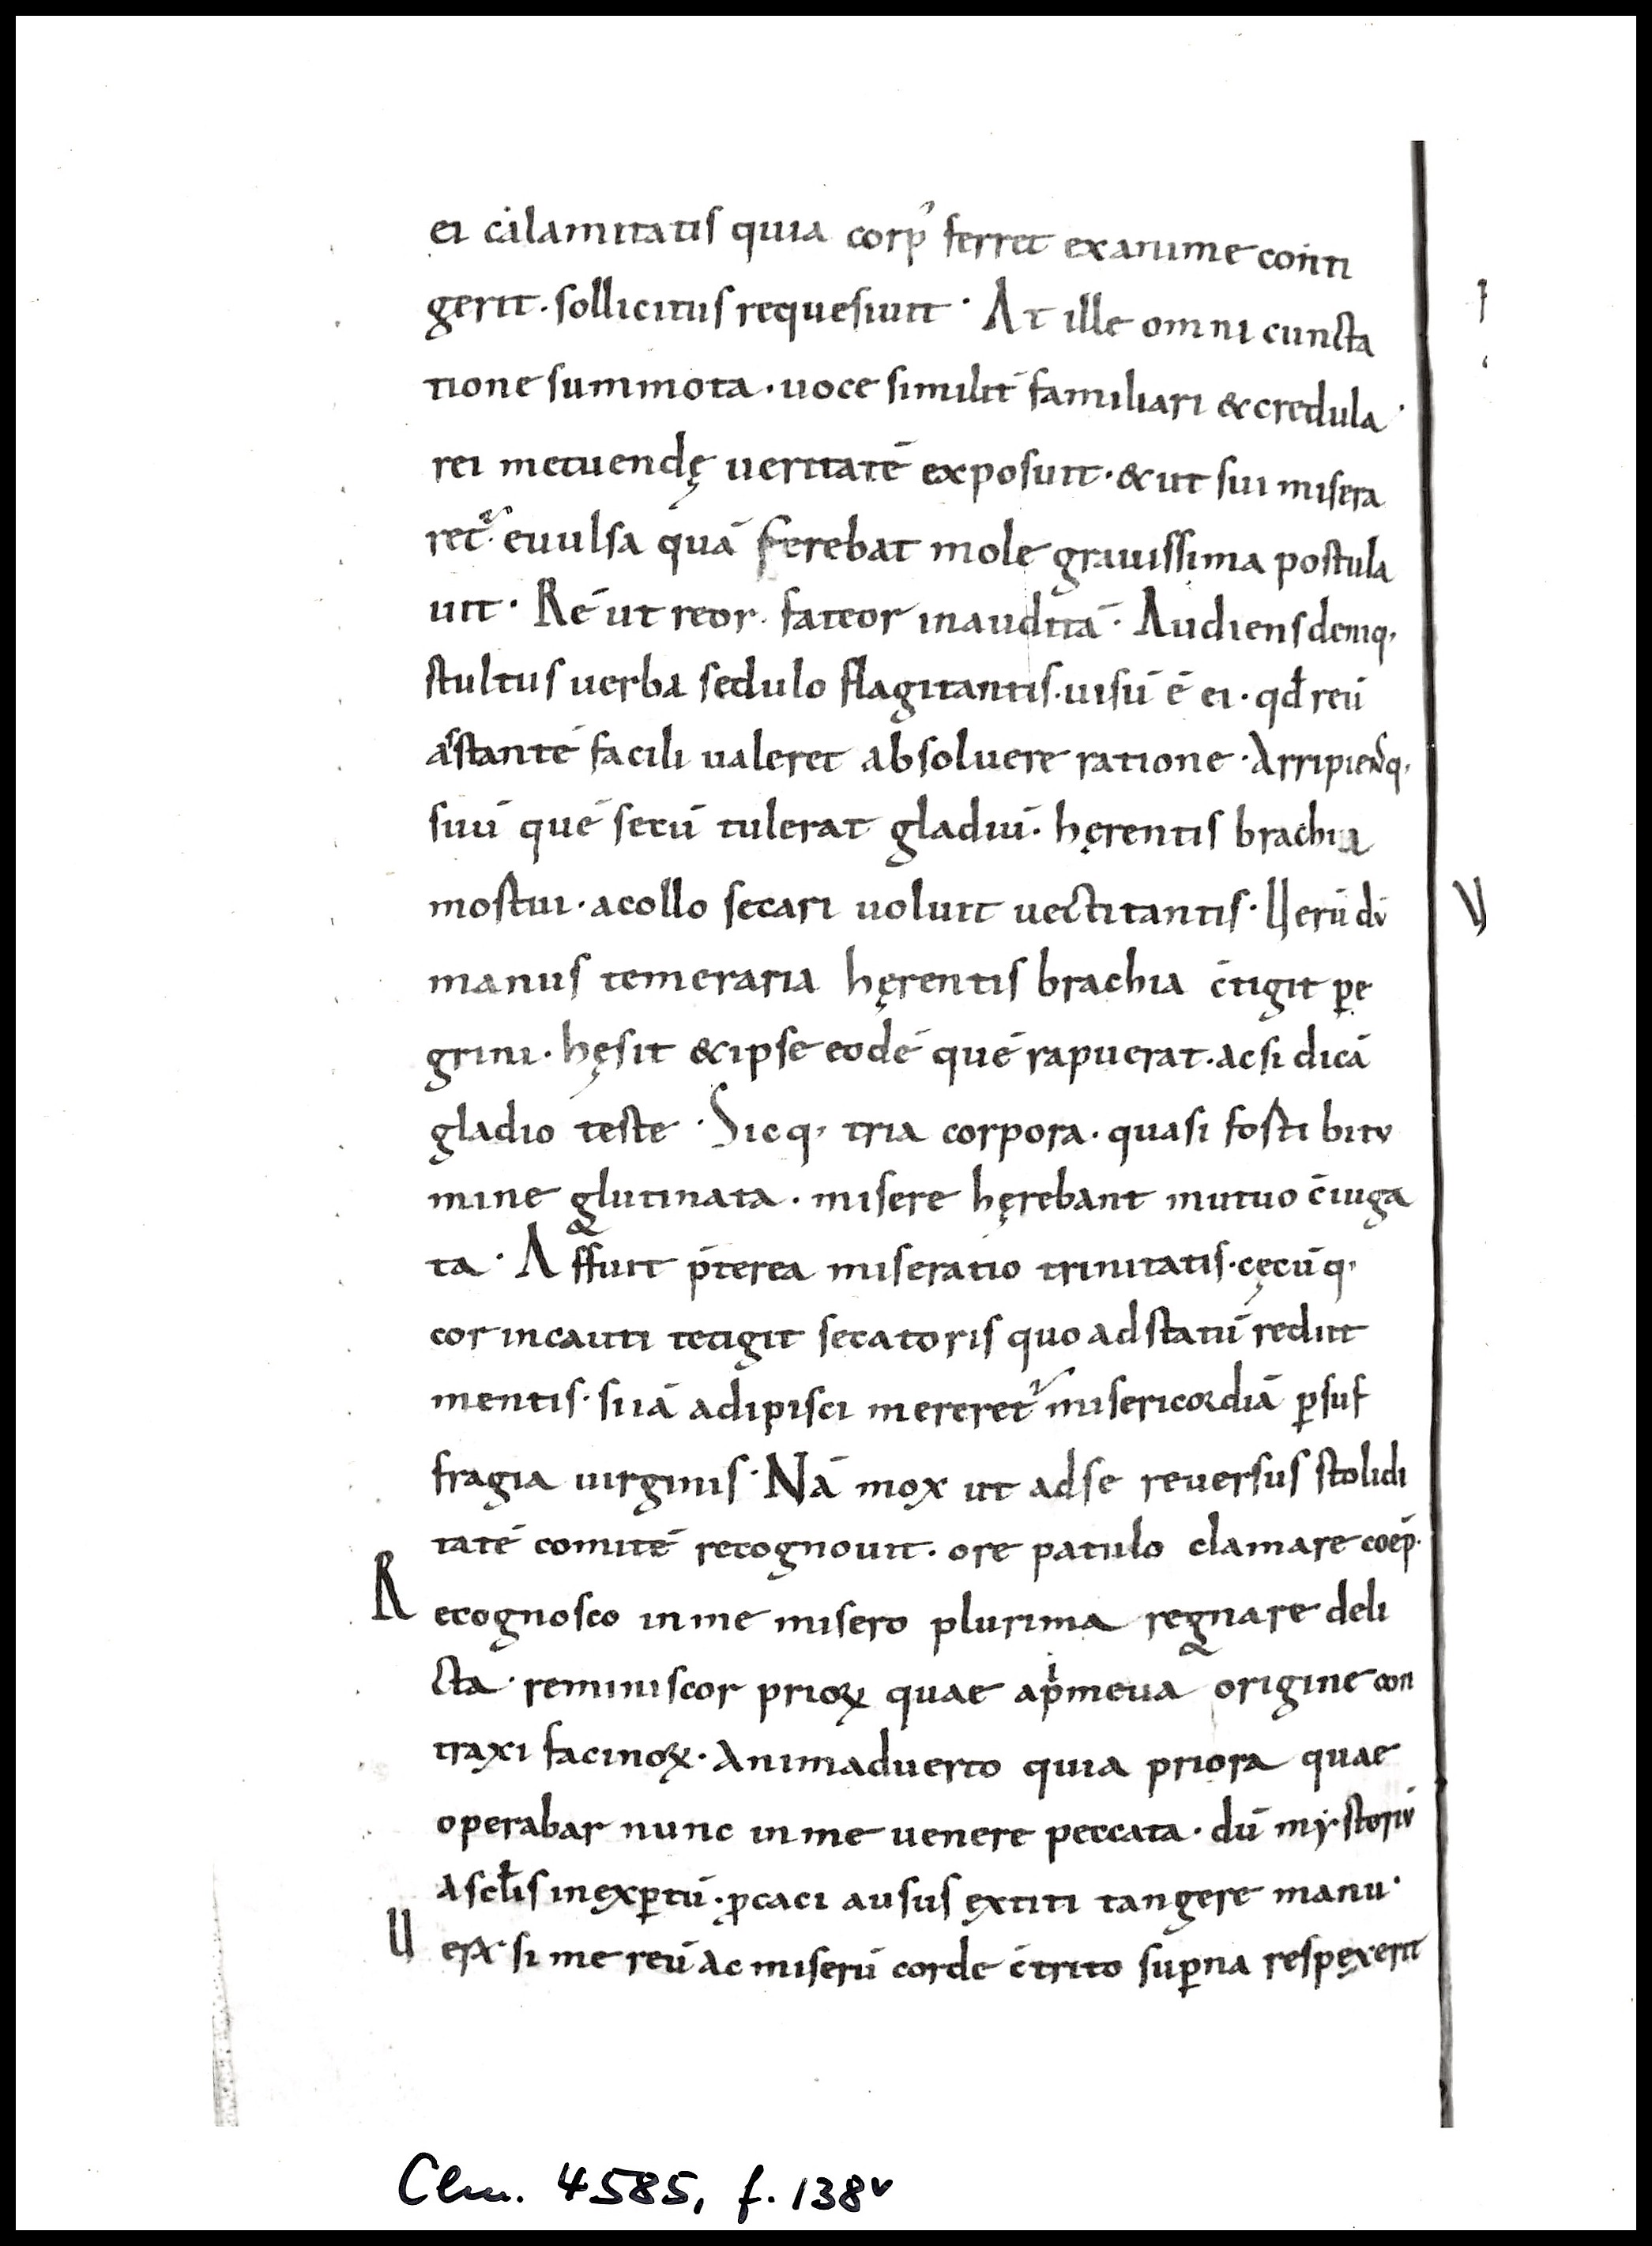 ei calamitatis quia corpꝰ ferret exanime conti
gerit · sollicitus requesiuit · At ille omni cuncta
tione summota · uoce similit̄ familiari & credula ·
rei metuendę ueritatē exposuit · & ut sui misera
ret᷑ · euulsa quā ferebat mole grauissima postula
uit · Rē ut reor · fateor inauditā · Audiens deniq;
stultus uerba sedulo flagitantis · uisū ē ei · qđ reū
astantē facili ualeret absoluere ratione · Arripiensq;
suū quē secū tulerat gladiū · hęrentis brachia
mostui · a collo secari uoluit uectitantis · Uerū dū
manus temeraria hęrentis brachia c̄tigit ꝑe
grini · hęsit & ipse eodē quē rapuerat · ac si dicā
gladio teste · Sicq; tria corpora · quasi forti bitu
mine glutinata · misere hęrebant mutuo c̄iuga
ta · Affuit p̄terea miseratio trinitatis · cęcūq;
cor incauti tetigit secatoris quo ad statū rediit
mentis · suā adipisci mereret᷑ misericordiā ꝑ suf
fragia uirginis · Nā mox ut ad se reuersus stolidi
tatē comitē recognouit · ore patulo clamare coep̄ ·
Recognosco in me misero plurima regnare deli
cta · reminiscor prioꝝ quae a pͥmeua origine con
traxi facinoꝝ · Animaduerto quia priora quae
operabar nunc in me uenere peccata · dū mysteriū
a sclīs inexꝑtū · ꝓcaci ausus extiti tangere manu ·
Ueꝝ · si me reū ac miserū corde c̄trito suꝑna respexerit
Clm. 4585, f. 138v